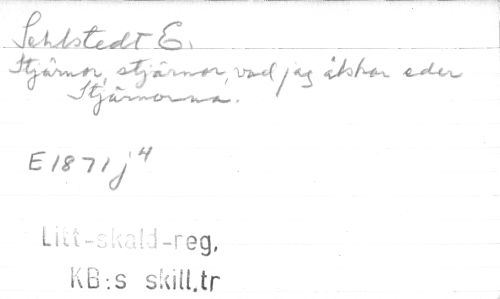 Sehlstedt E.
Stjärnor, stjärnor, vad jag älskar eder
Stjärnorna.
E 1871 j 4
Litt-skald-reg.
KB:s skill.tr